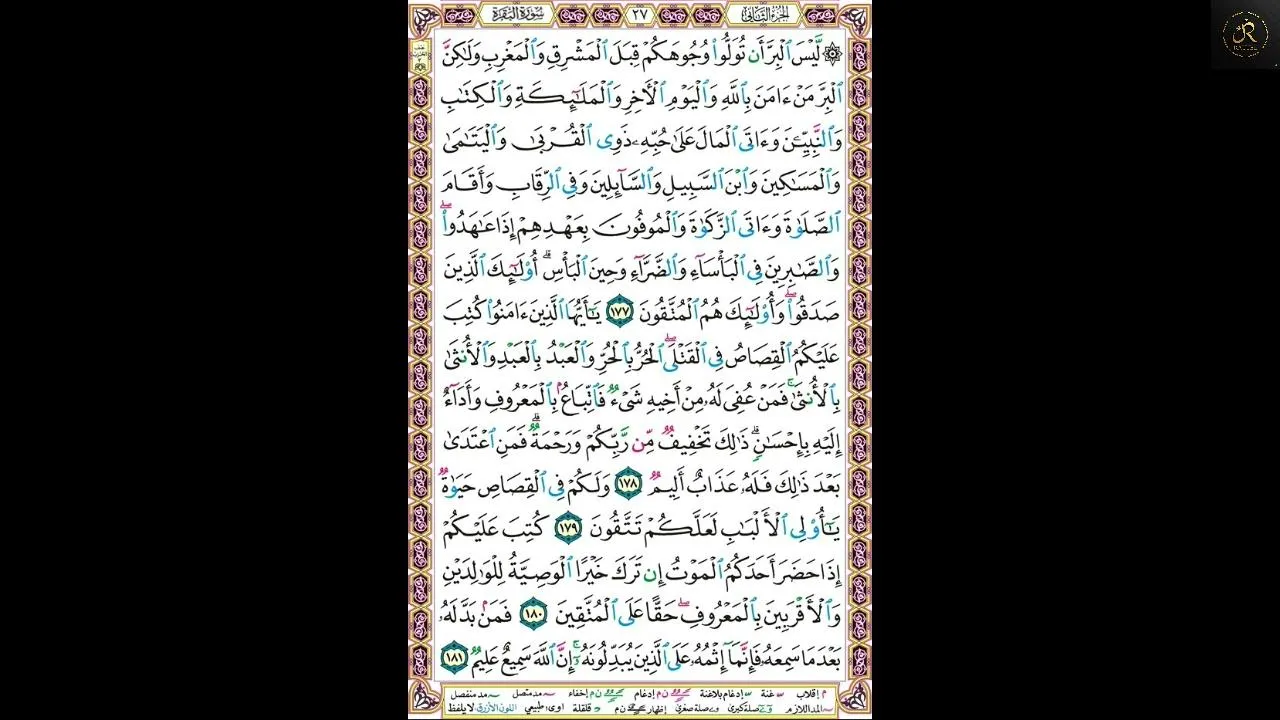 الجزء الثاني ٢٧ سورة البقرة
۞ لَّيْسَ ٱلْبِرَّ أَن تُوَلُّوا۟ وُجُوهَكُمْ قِبَلَ ٱلْمَشْرِقِ وَٱلْمَغْرِبِ وَلَٰكِنَّ
ٱلْبِرَّ مَنْ ءَامَنَ بِٱللَّهِ وَٱلْيَوْمِ ٱلْءَاخِرِ وَٱلْمَلَٰٓئِكَةِ وَٱلْكِتَٰبِ
وَٱلنَّبِيِّـۧنَ وَءَاتَى ٱلْمَالَ عَلَىٰ حُبِّهِۦ ذَوِى ٱلْقُرْبَىٰ وَٱلْيَتَٰمَىٰ
وَٱلْمَسَٰكِينَ وَٱبْنَ ٱلسَّبِيلِ وَٱلسَّآئِلِينَ وَفِى ٱلرِّقَابِ وَأَقَامَ
ٱلصَّلَوٰةَ وَءَاتَى ٱلزَّكَوٰةَ وَٱلْمُوفُونَ بِعَهْدِهِمْ إِذَا عَٰهَدُوا۟ ۖ
وَٱلصَّٰبِرِينَ فِى ٱلْبَأْسَآءِ وَٱلضَّرَّآءِ وَحِينَ ٱلْبَأْسِ ۗ أُو۟لَٰٓئِكَ ٱلَّذِينَ
صَدَقُوا۟ ۖ وَأُو۟لَٰٓئِكَ هُمُ ٱلْمُتَّقُونَ ١٧٧ يَٰٓأَيُّهَا ٱلَّذِينَ ءَامَنُوا۟ كُتِبَ
عَلَيْكُمُ ٱلْقِصَاصُ فِى ٱلْقَتْلَى ۖ ٱلْحُرُّ بِٱلْحُرِّ وَٱلْعَبْدُ بِٱلْعَبْدِ وَٱلْأُنثَىٰ
بِٱلْأُنثَىٰ ۚ فَمَنْ عُفِىَ لَهُۥ مِنْ أَخِيهِ شَىْءٌ فَٱتِّبَاعٌۢ بِٱلْمَعْرُوفِ وَأَدَآءٌ
إِلَيْهِ بِإِحْسَٰنٍ ۗ ذَٰلِكَ تَخْفِيفٌ مِّن رَّبِّكُمْ وَرَحْمَةٌ ۗ فَمَنِ ٱعْتَدَىٰ
بَعْدَ ذَٰلِكَ فَلَهُۥ عَذَابٌ أَلِيمٌ ١٧٨ وَلَكُمْ فِى ٱلْقِصَاصِ حَيَوٰةٌ
يَٰٓأُو۟لِى ٱلْأَلْبَٰبِ لَعَلَّكُمْ تَتَّقُونَ ١٧٩ كُتِبَ عَلَيْكُمْ
إِذَا حَضَرَ أَحَدَكُمُ ٱلْمَوْتُ إِن تَرَكَ خَيْرًا ٱلْوَصِيَّةُ لِلْوَٰلِدَيْنِ
وَٱلْأَقْرَبِينَ بِٱلْمَعْرُوفِ ۖ حَقًّا عَلَى ٱلْمُتَّقِينَ ١٨٠ فَمَنۢ بَدَّلَهُۥ
بَعْدَ مَا سَمِعَهُۥ فَإِنَّمَآ إِثْمُهُۥ عَلَى ٱلَّذِينَ يُبَدِّلُونَهُۥٓ ۚ إِنَّ ٱللَّهَ سَمِيعٌ عَلِيمٌ ١٨١
م إقلاب غنة إدغام بلاغنة ن م إدغام ن م إخفاء مد متصل مد منفصل
المد اللازم صلة كبرى صلة صغرى إظهار ن م قلقلة اوى طبيعي اللون الأزرق لا يلفظ